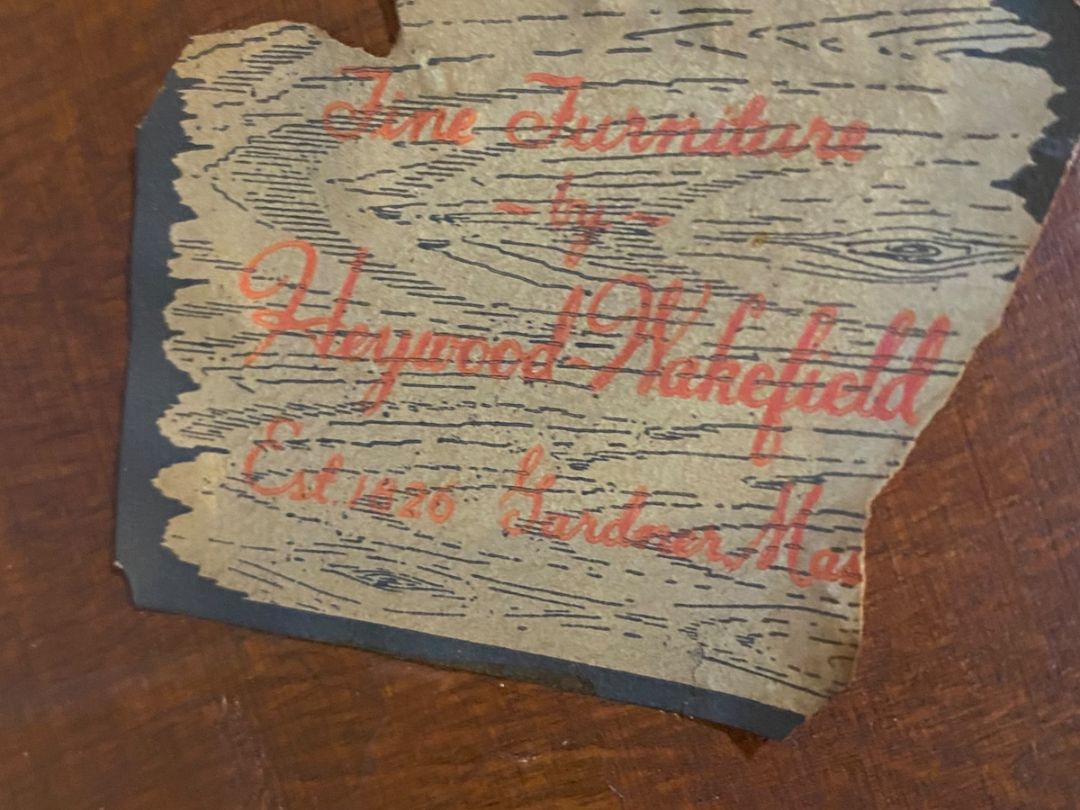 Fine Furniture
- by -
Heywood-Wakefield
Est. 1826 Gardner, Mas